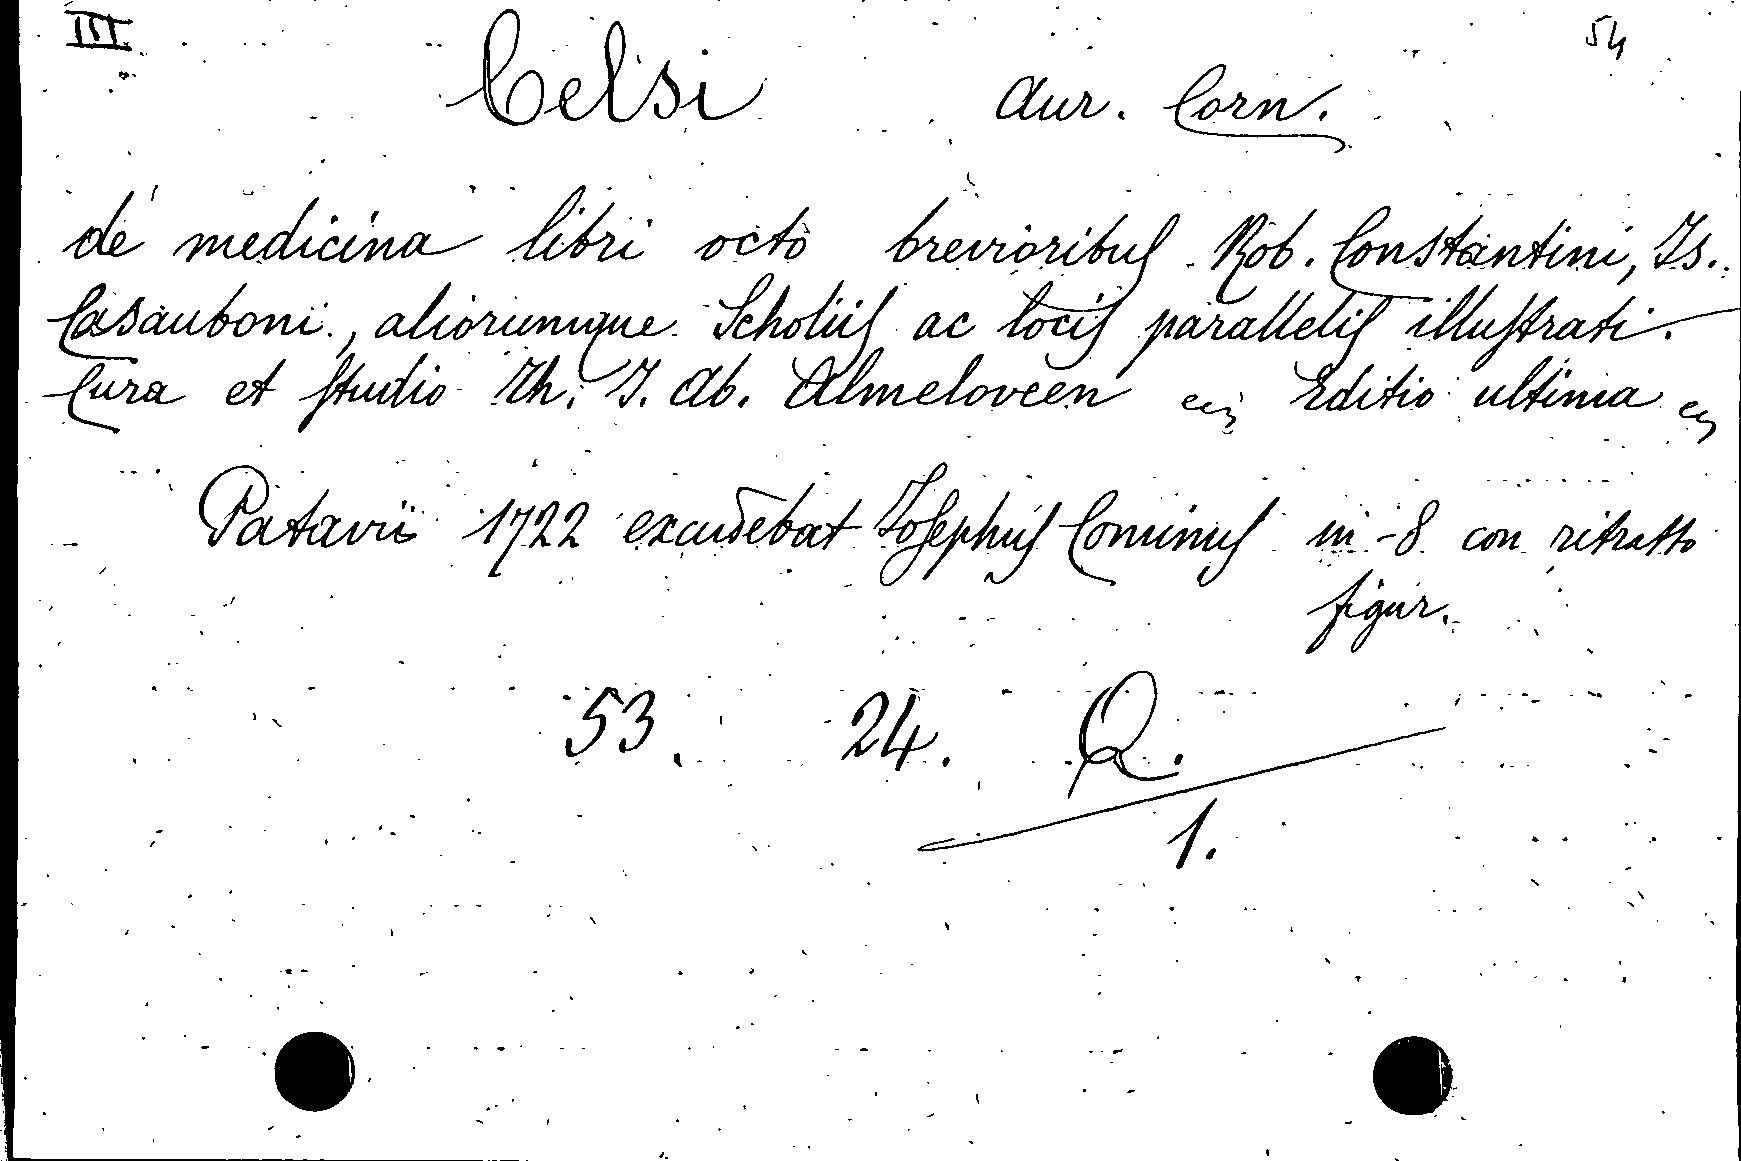 III. 54
Celsi Aur. Corn.
de medicina libri octo brevioribus Rob. Constantini, Is.
Casauboni, aliorumque Scholiis ac locis parallelis illustrati.
Cura et studio Th. J. ab. Almeloveen Editio ultima
Patavii 1722 excudebat Josephus Cominus in-8 con ritratto
figur.
53. 24. Q.
1.